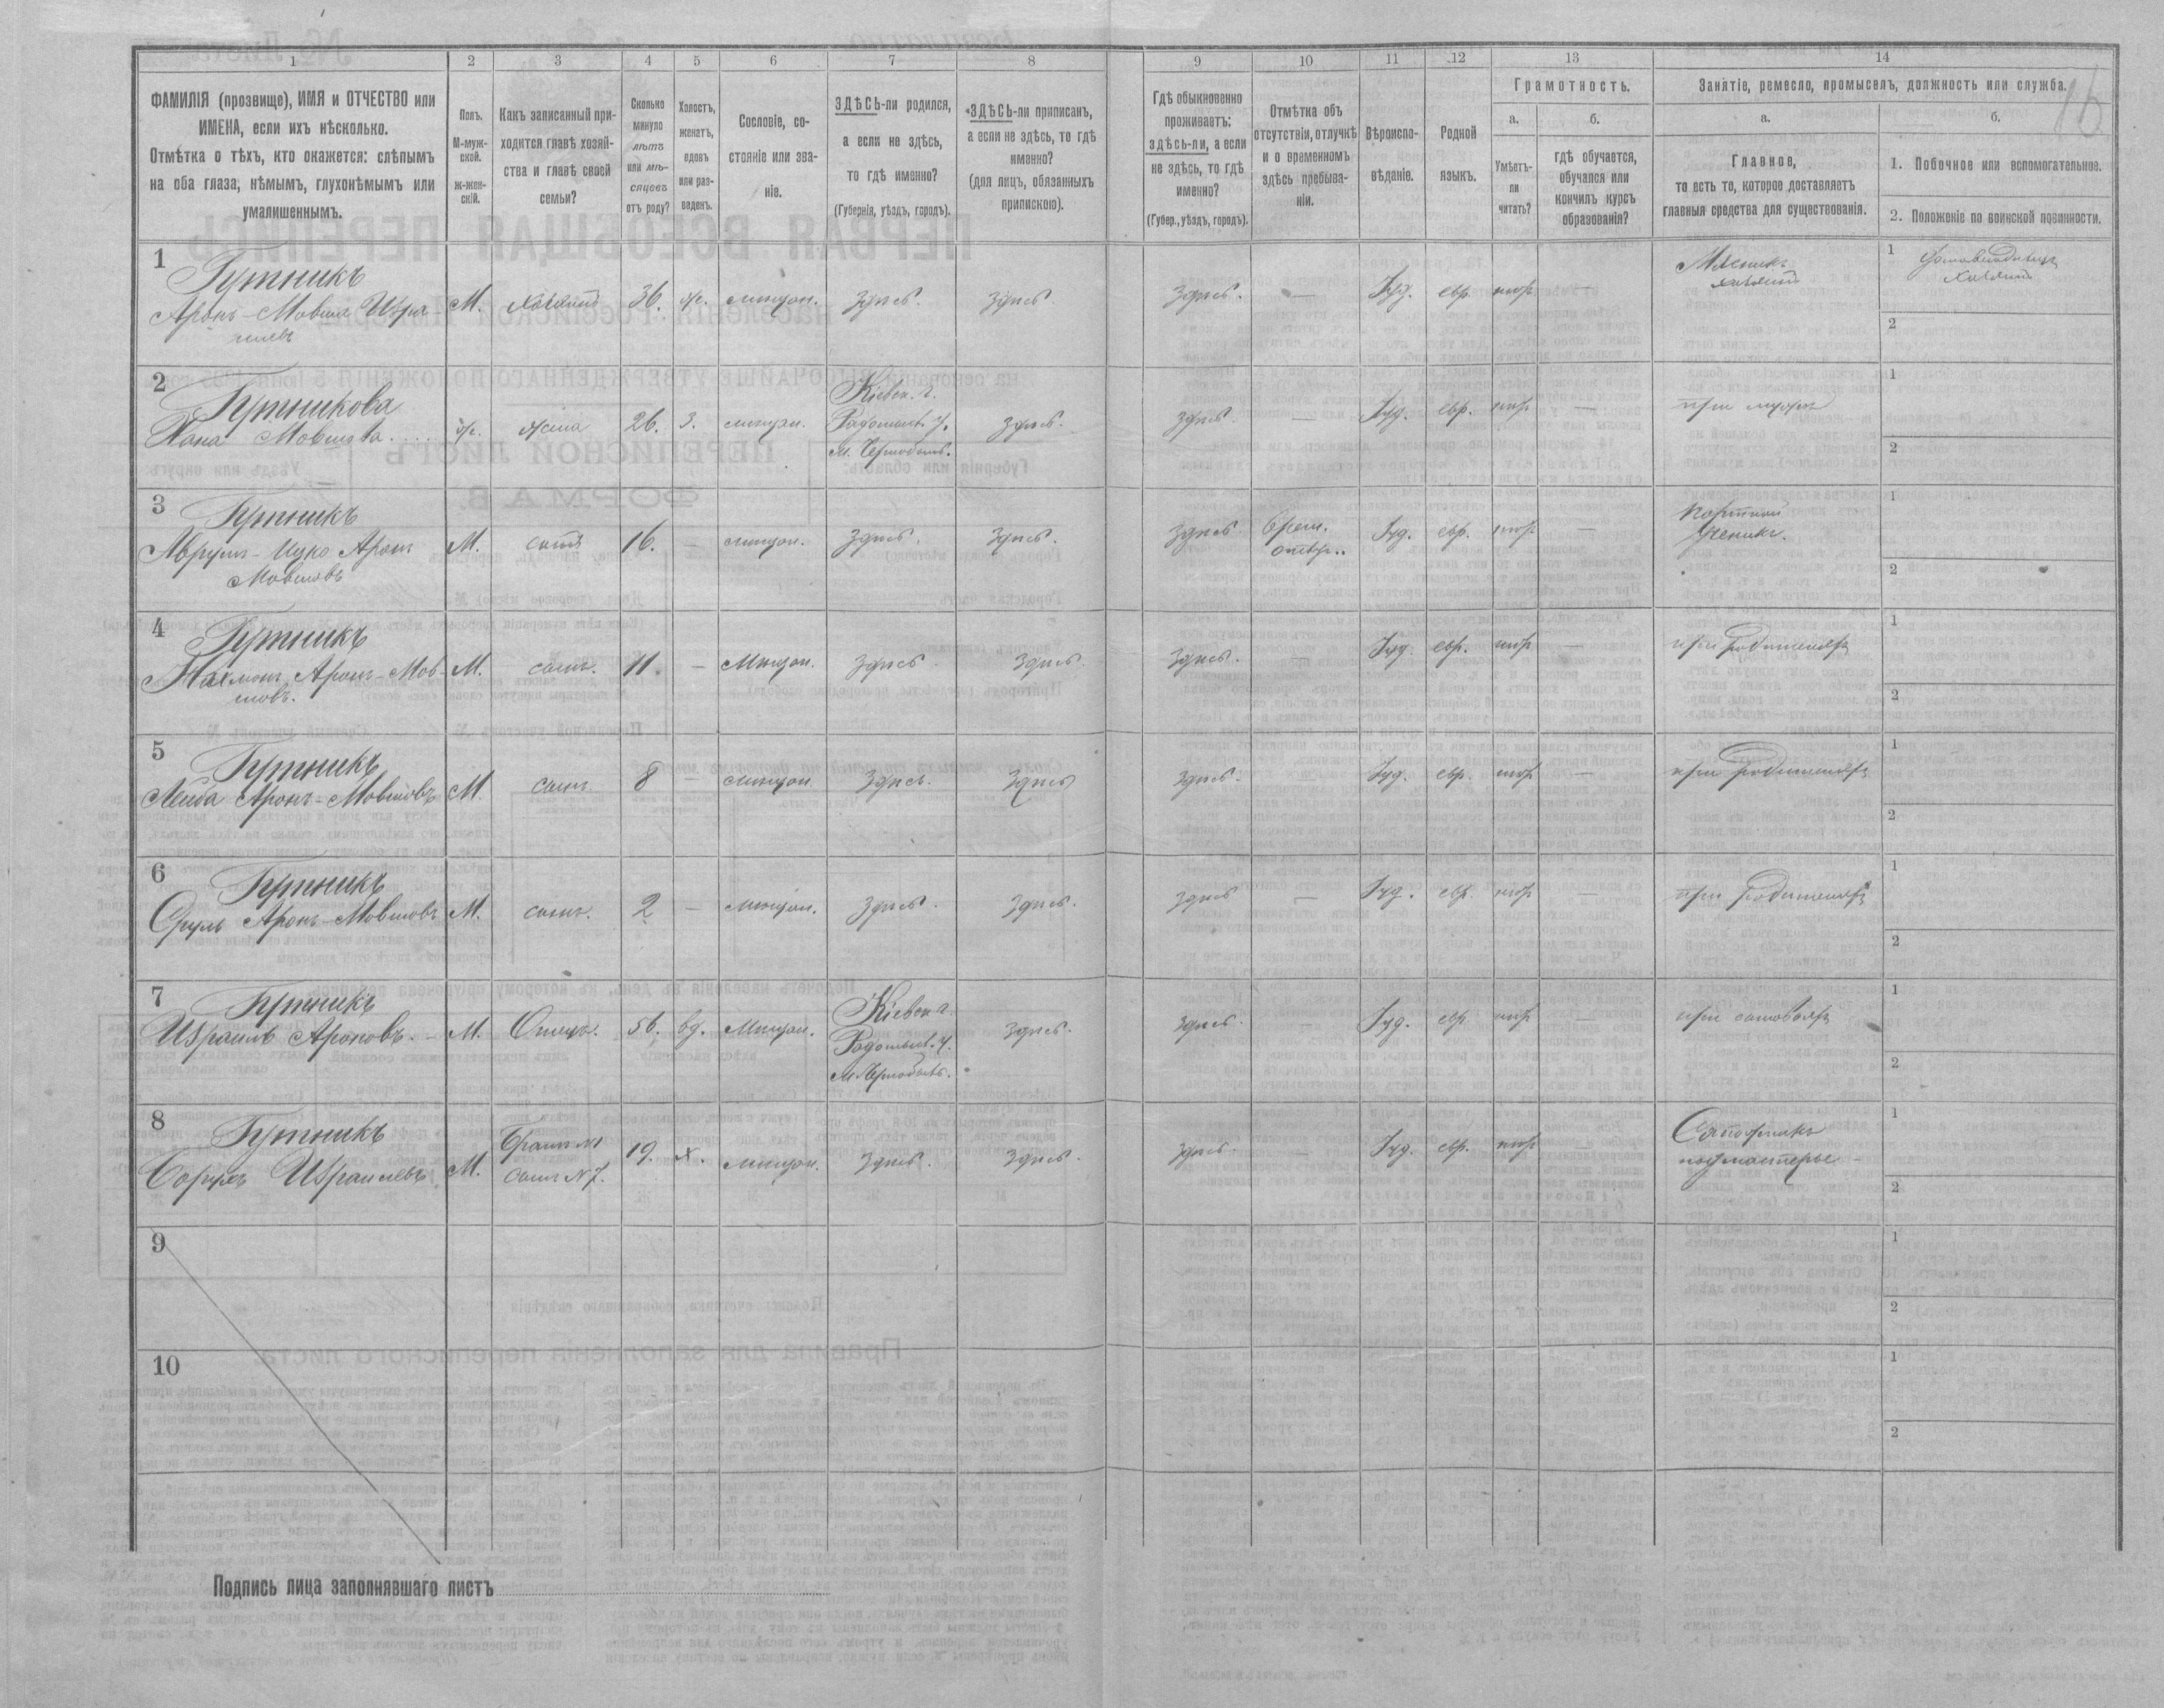 1 2 3 4 5 6 7 8 9 10 11 12 13 14
ФАМИЛІЯ (прозвище), ИМЯ и ОТЧЕСТВО или
ИМЕНА, если ихъ нѣсколько.
Отмѣтка о тѣхъ, кто окажется: слѣпымъ
на оба глаза, нѣмымъ, глухонѣмымъ или
умалишеннымъ.
Полъ.
М-муж-
ской.
ж-жен-
скій.
Какъ записанный при-
ходится главѣ хозяй-
ства и главѣ своей
семьи?
Сколько
минуло
лѣтъ
или мѣ-
сяцевъ
отъ роду?
Холостъ,
женатъ,
вдовъ
или раз-
веденъ.
Сословіе, со-
стояніе или зва-
ніе.
ЗДѢСЬ-ли родился,
а если не здѣсь,
то гдѣ именно?
(Губернія, уѣздъ, городъ).
«ЗДѢСЬ-ли приписанъ,
а если не здѣсь, то гдѣ
именно?
(для лицъ, обязанныхъ
припискою).
Гдѣ обыкновенно
проживаетъ:
здѣсь-ли, а если
не здѣсь, то гдѣ
именно?
(Губер., уѣздъ, городъ).
Отмѣтка объ
отсутствіи, отлучкѣ
и о временномъ
здѣсь пребыва-
ніи.
Вѣроиспо-
вѣданіе.
Родной
языкъ.
Грамотность.
а.
Умѣетъ-
ли
читать?
б.
гдѣ обучается,
обучался или
кончилъ курсъ
образованія?
Занятіе, ремесло, промыселъ, должность или служба.
16
а.
Главное,
то есть то, которое доставляетъ
главныя средства для существованія.
б.
1. Побочное или вспомогательное.
2. Положеніе по воинской повинности.
1
Гутникъ
Аронъ-Мовша Изра-
илевъ
М. хозяинъ 36. ж. мѣщан. здѣсь. здѣсь. здѣсь. — Iуд. евр.
Мясникъ
хозяинъ
1
хозяинъ
2
2
Гутникова
Хана Мовшова
ж. жена 26. З. мѣщан.
Кіевск. г.
Радомысл. у.
м. Чернобыль.
здѣсь. здѣсь. — Iуд. евр. —
при мужѣ
1
2
3
Гутникъ
Аврумъ-Ицко Аронъ
Мовшовъ
М. сынъ 16. — мѣщан. здѣсь. здѣсь. здѣсь
Врем.
Iуд. евр. —
Портной
ученикъ.
1
2
4
Гутникъ
Нахманъ Аронъ-Мов-
шовъ.
М. сынъ. 11. — Мѣщан. здѣсь. здѣсь здѣсь. — Iуд. евр. —
при родителяхъ
1
2
5
Гутникъ
Лейба Аронъ-Мовшовъ
М. сынъ 8 — мѣщан. здѣсь. здѣсь здѣсь. — Iуд. евр. —
при родителяхъ
1
2
6
Гутникъ
Сруль Аронъ-Мовшовъ
М. сынъ. 2 — мѣщан. здѣсь. здѣсь. здѣсь — Iуд. евр. —
при родителяхъ
1
2
7
Гутникъ
Израиль Ароновъ.
М. Отецъ. 56. вд. Мѣщан.
Кіевск. г.
Радомысл. у.
м. Чернобыль.
здѣсь. здѣсь. — Iуд. евр —
при сыновьяхъ
1
2
8
Гутникъ
Борухъ Израилевъ
М.
Братъ №1
сынъ №7.
19. х. мѣщан. здѣсь. здѣсь. здѣсь. — Iуд. евр.
Сапожникъ
подмастерье
1
2
9
1
2
10
1
2
Подпись лица заполнявшаго листъ